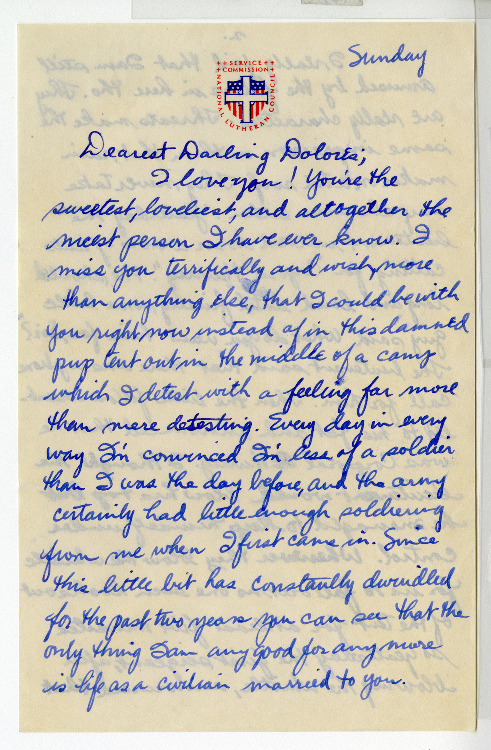 SERVICE
COMMISSION
NATIONAL LUTHERAN COUNCIL
Sunday
Dearest Darling Dolores;
I love you! You're the
sweetest, loveliest, and altogether the
nicest person I have ever know. I
miss you terrifically and wish, more
than anything else, that I could be with
you right now instead of in this damned
pup tent out in the middle of a camp
which I detest with a feeling far more
than mere detesting. Every day in every
way I'm convinced I'm less of a soldier
than I was the day before, and the army
certainly had little enough soldiering
from me when I first came in. Since
this little bit has constantly dwindled
for the past two years you can see that the
only thing I am any good for any more
is life as a civilian married to you.